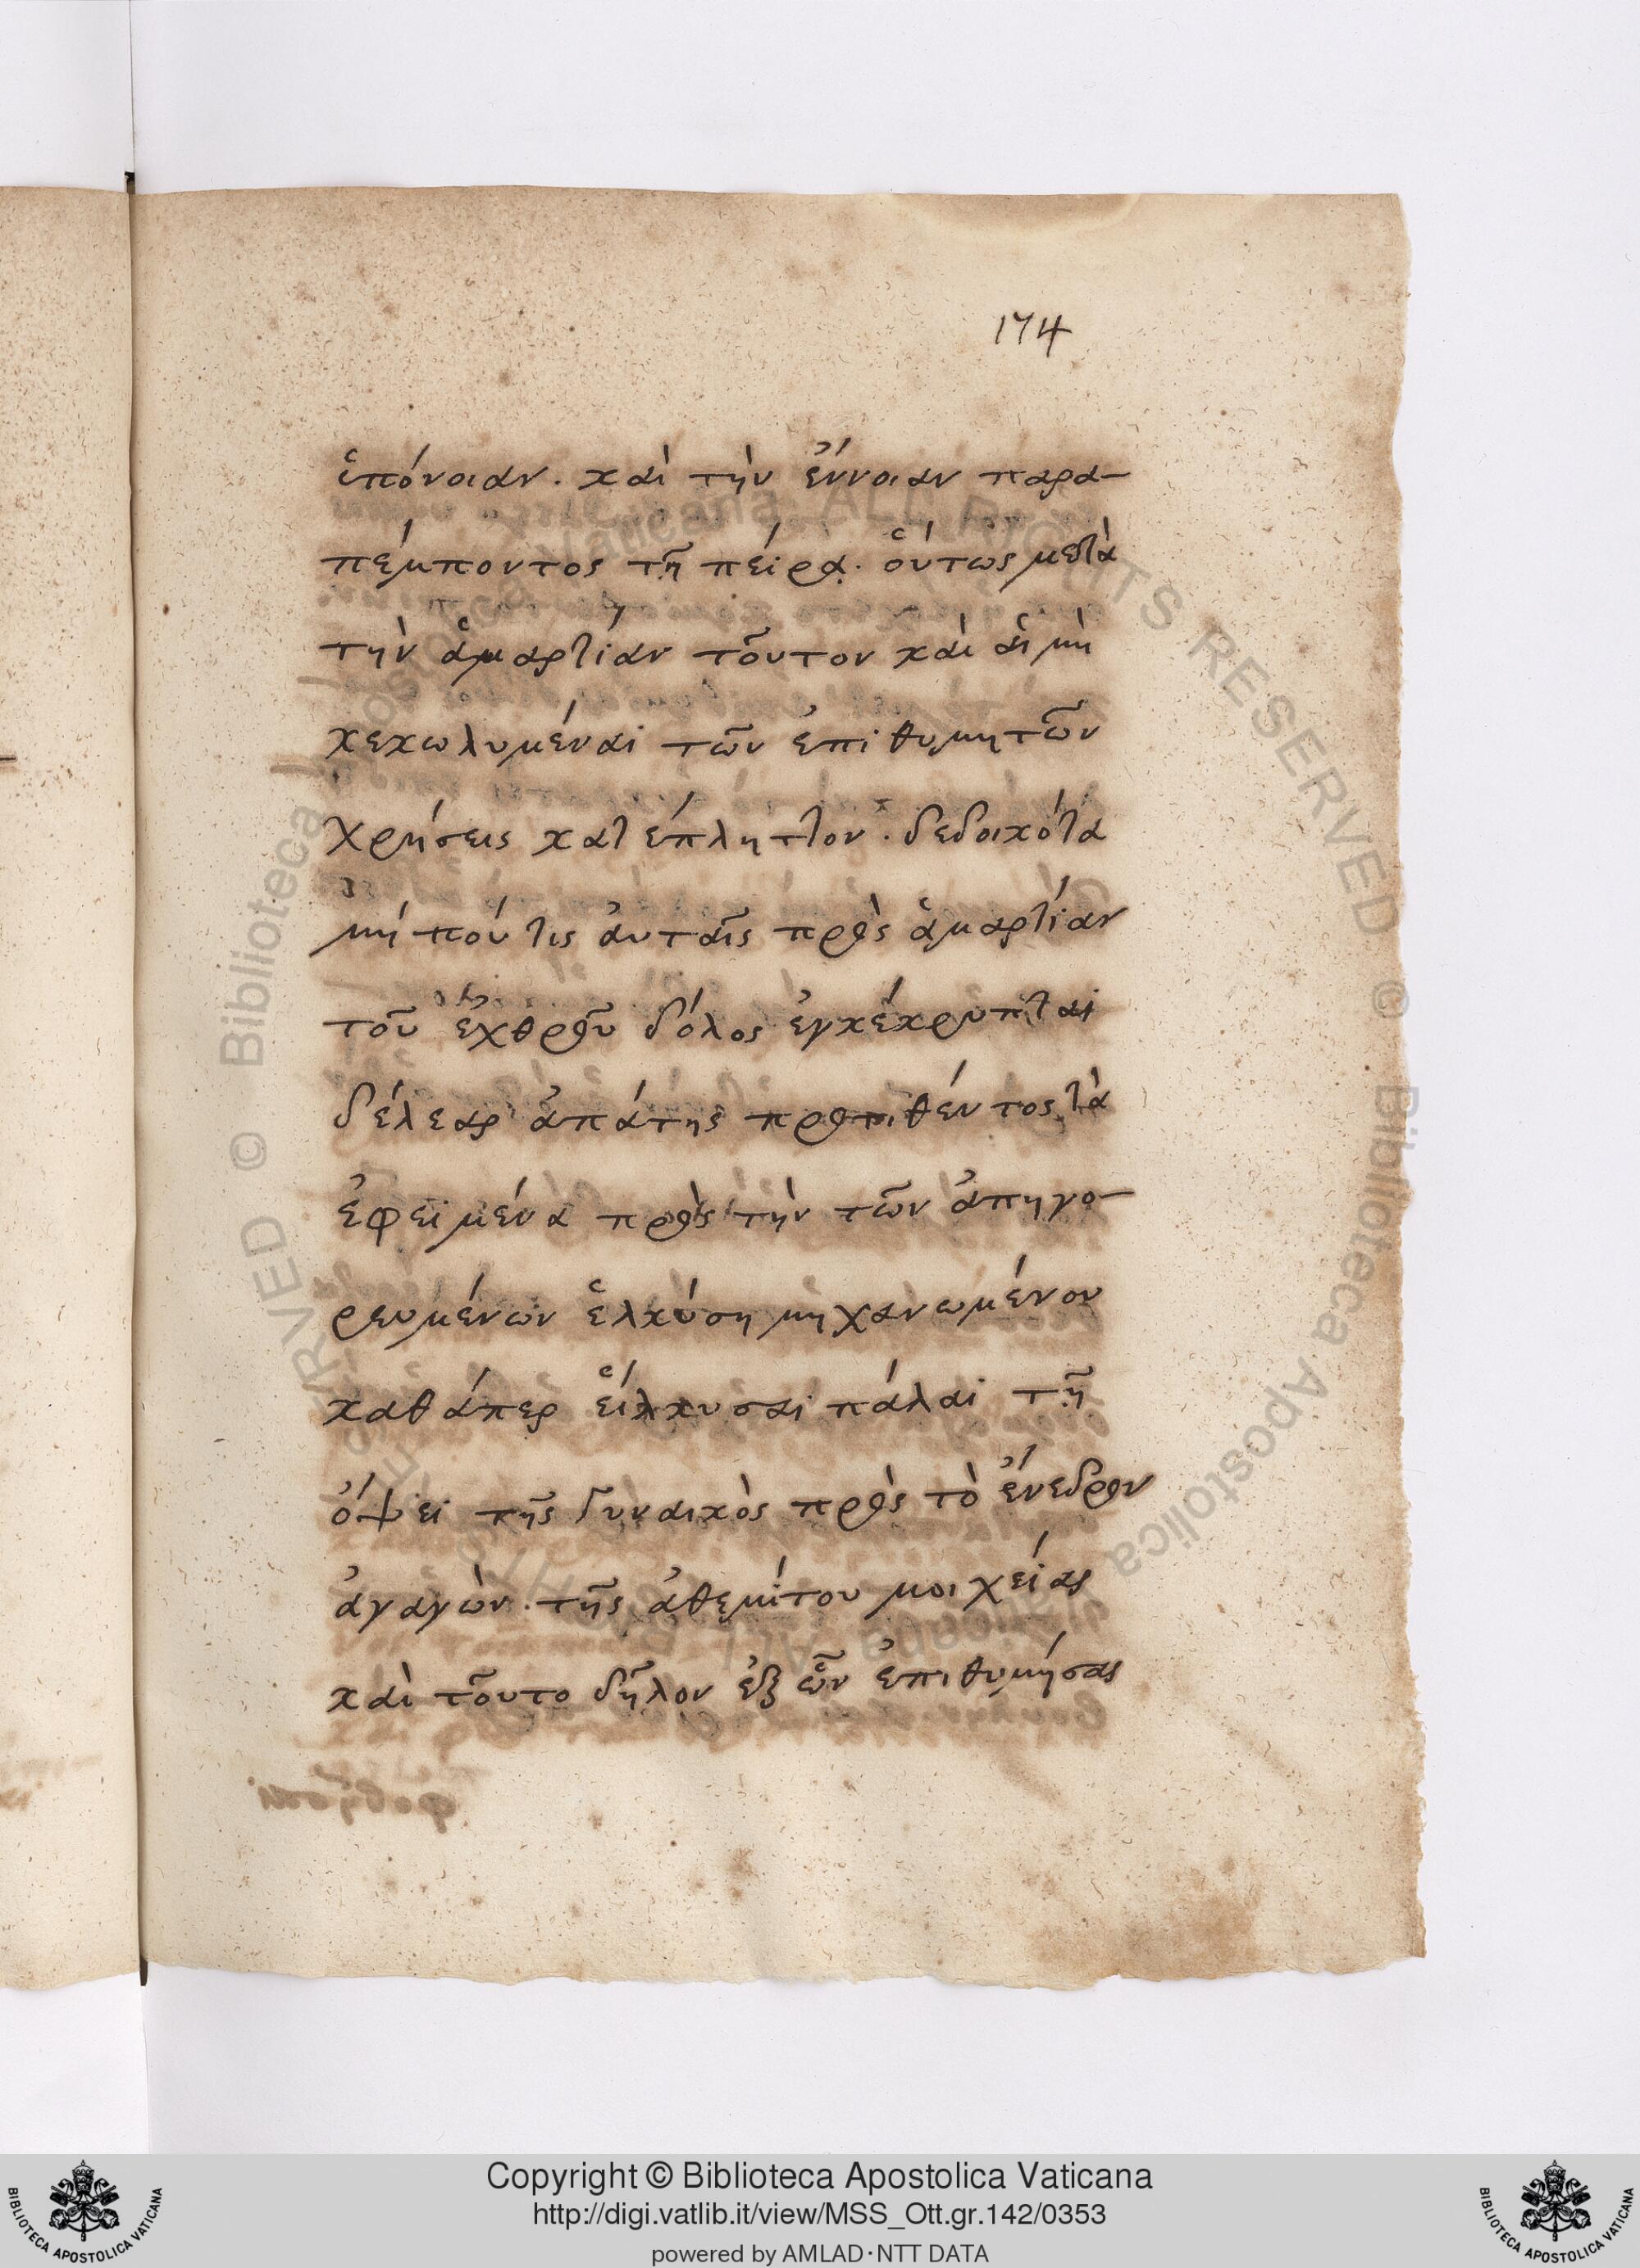 174
ὑπόνοιαν. καὶ τὴν ἔννοιαν παρα-
πέμποντος τῇ πείρᾳ. οὕτως μετὰ
τὴν ἁμαρτίαν τοῦτον καὶ αἱ μὴ
κεκωλυμέναι τῶν ἐπιθυμητῶν
χρήσεις κατέπληττον. δεδοικότα
μή πού τις αὐταῖς πρὸς ἁμαρτίαν
τοῦ ἐχθροῦ δόλος ἐγκέκρυπται
δέλεαρ ἀπάτης προτιθέντος τὰ
ἐφειμένα πρὸς τὴν τῶν ἀπηγο-
ρευμένων ἑλκύση μηχανωμένου
καθάπερ εἵλκυσαι πάλαι τῇ
ὄψει τῆς γυναικὸς πρὸς τὸ ἔνεδρον
ἀγαγὼν. τῆς ἀθεμίτου μοιχείας
καὶ τοῦτο δῆλον ἐξ ὧν ἐπιθυμήσας
Copyright © Biblioteca Apostolica Vaticana
http://digi.vatlib.it/view/MSS_Ott.gr.142/0353
powered by AMLAD·NTT DATA
BIBLIOTECA APOSTOLICA VATICANA
BIBLIOTECA APOSTOLICA VATICANA